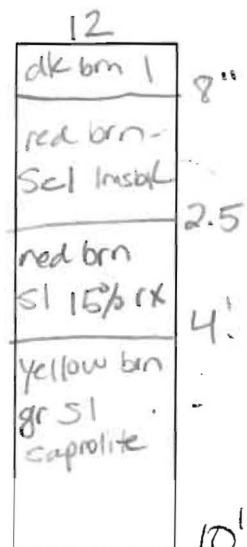 12
dk brn l
8"
red brn-
Scl 1msbk
2.5
red brn
sl 15% rx
4'
yellow brn
gr sl
saprolite
10'